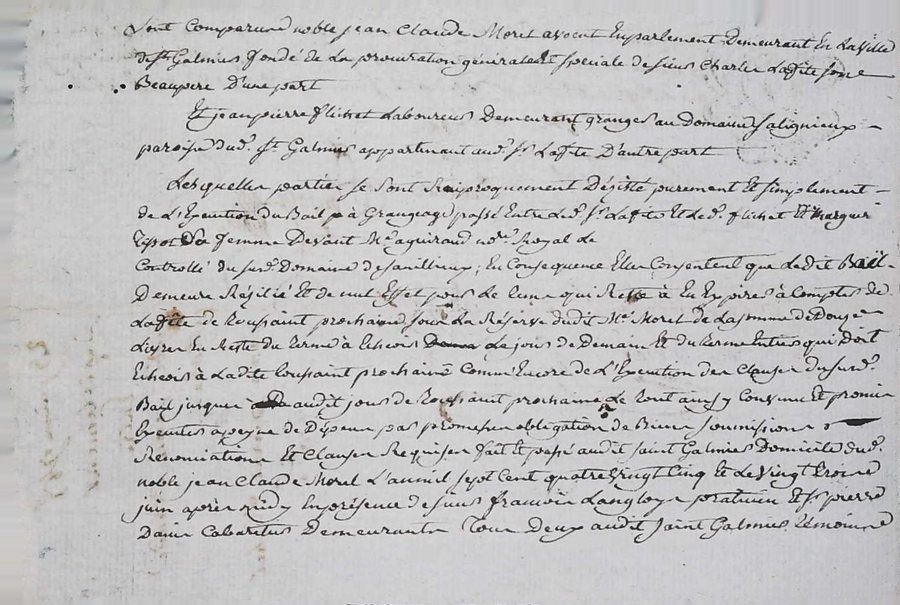 Sont Comparurd noble jean Claude Moret avocat En parlement Demeurant En la Ville
de St Galmier fondé de La procuration générale Et speciale de sieur Charles Laffite son
Beaupere D'une part
Et jean pierre flichet Laboureur Demeurant granger au Domaine Salignieux
paroisse dud. St Galmier appartenant aud. Sr Laffite D'autre part
Lesquelles parties se Sont Réciproquement Désisté purement Et simplement
de L'Execution du Bail à Grangeage passé Entre Led. Sr Laffite Et Led. flichet Et
sa femme Devant Me aguiraud nore Royal Le
Controllé du sud. Domaine de ; En Consequence Elles Consentent que Ledit Bail
Demeure Résilié Et de nul Effet pour Le tems qui Reste à En Expirer à Compter de
La fête de Toussaint prochaine sous La Réserve dudit Me Moret de La somme de Douze
Livres En Reste du terme à Echeoir Le jour de Demain Et du terme Entier qui Doit
Echeoir à Ladite Toussaint prochaine Comm'Encore de L'Execution des Clauses du sud.
Bail jusques audit jour de Toussaint prochaine Le tout ainsy Convenu Et promis
Executer a peyne de Dépens par promesses obligation de Biens soumissions
Renonciations Et Clauses Requises fait Et passé audit saint Galmier Domicile dud.
noble jean Claude Moret L'an mil sept Cent quatre Vingt Cinq Et Le Vingt trois
juin après midy En présence de sieur françois Langloys praticien Et Sr pierre
Cabaretier Demeurants Tous Deux audit Saint Galmier témoins